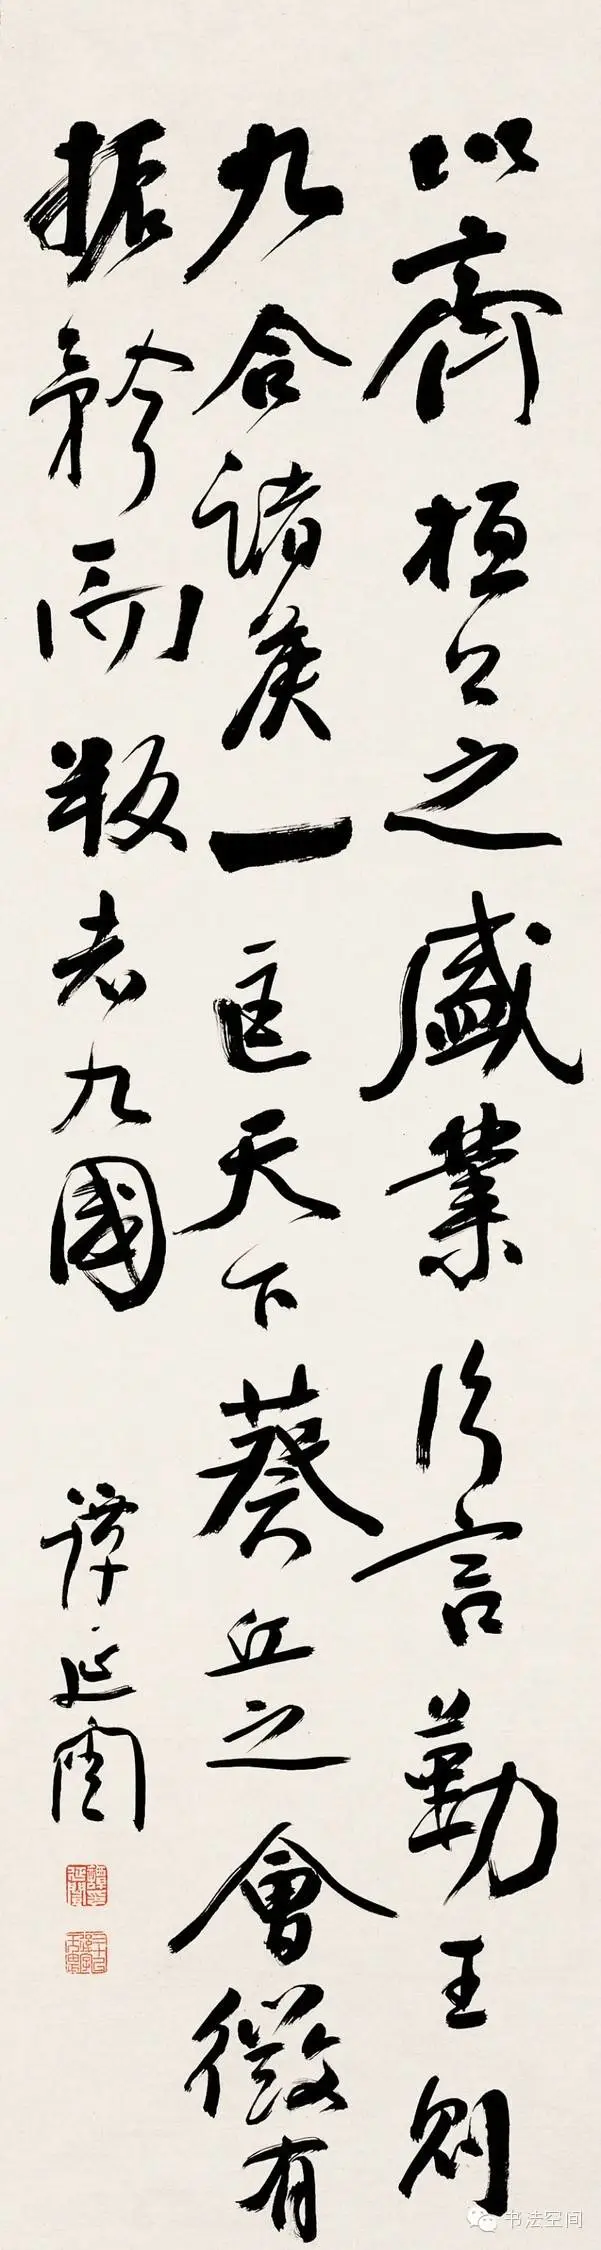 以齊桓公之盛業片言勤王則
九合諸侯一匡天下葵丘之會微有
振矜而叛者九國
譚延闓
书法空间